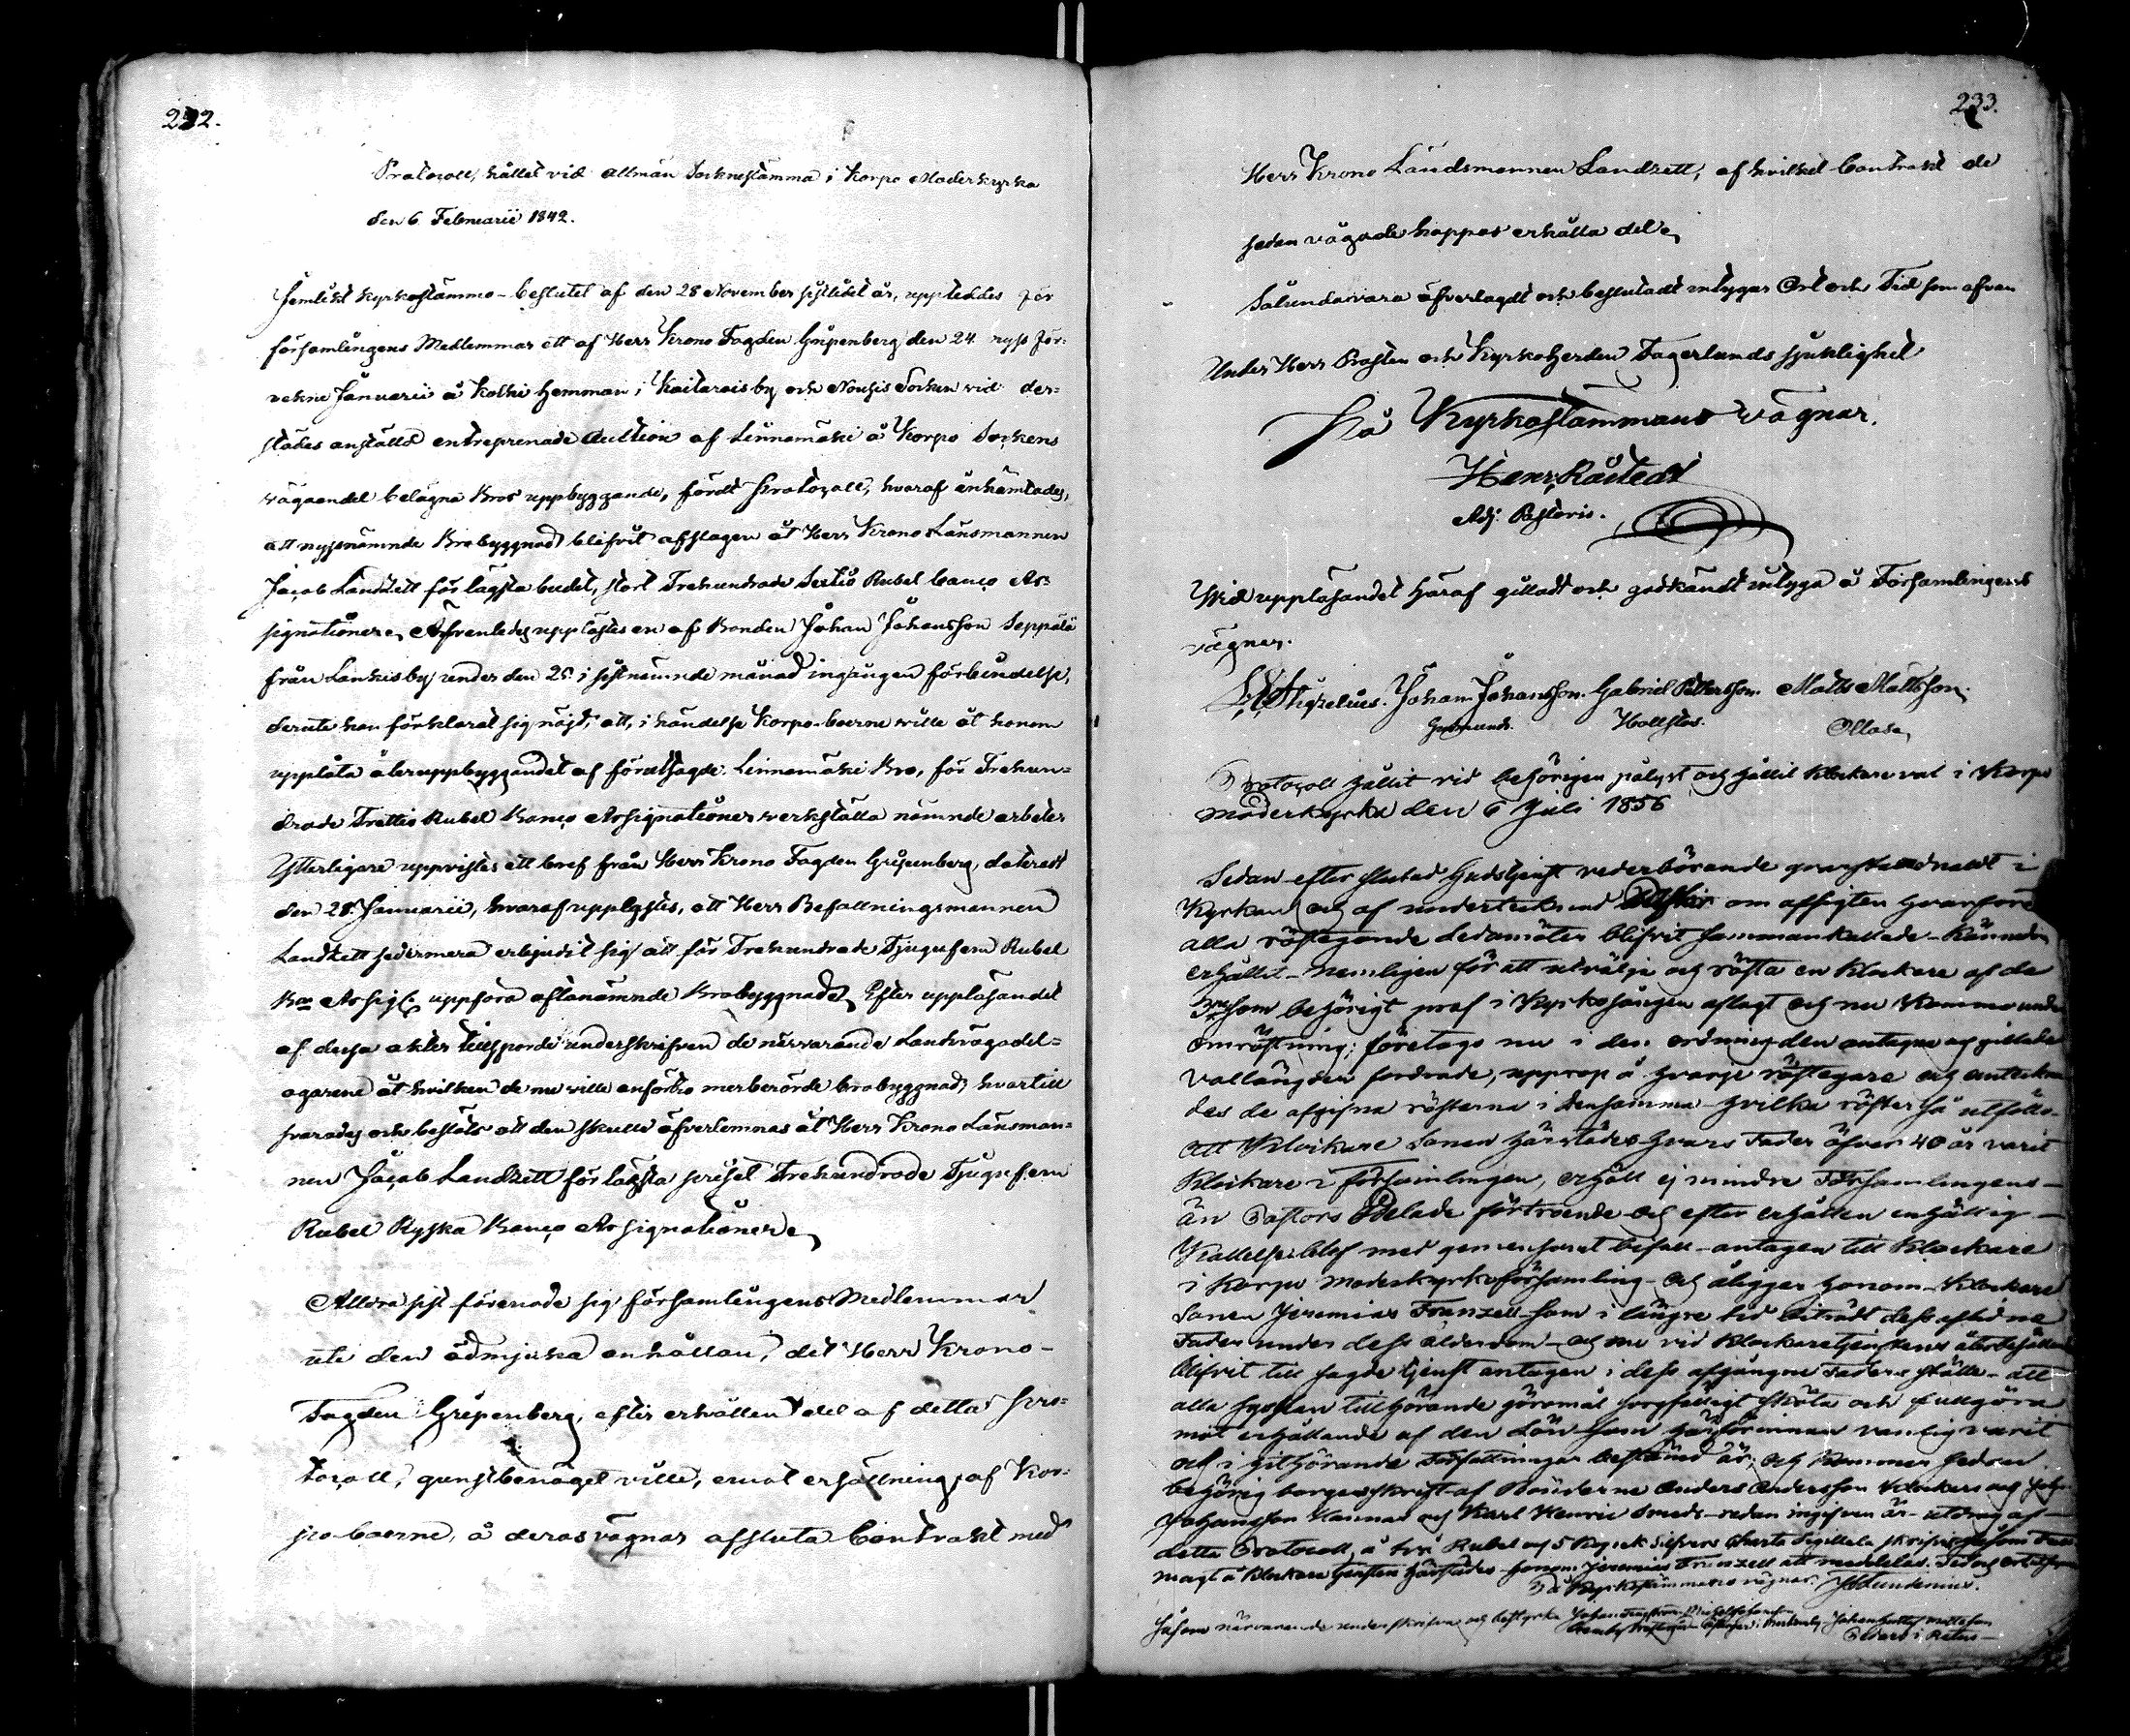 232.
Protocoll, hållet vid allmän Socknestämma i Korpo Moderkyrka
den 6 Februarii 1842.
Jemlikt Kyrkostämmo-beslutet af den 28 November sistledet år, uppteddes för
församlingens Medlemmar ett af Herr Krono Fogden Gripenberg den 24 nyss för-
vekne Januarii å Kolki Hemman, i Kaitarais by och Nousis Socken vid der-
städes anställd entreprenade Auction af Linnamäki å Korpo Sockens
vägaandel belägna Bros uppbyggande, fördt Protocoll, hvaraf inhämtades,
att nyssnämnde Brobyggnad blifvit afslagen åt Herr Krono Länsmannen
Jacob Landzett för lägsta budet, stort Trehundrade Sextio Rubel Banco As-
signationer. Äfvenledes upplästes en af Bonden Johan Johansson Seppälä
från Lankis by under den 25 i sistnämnde månad ingången förbindelse,
deruti han förklarat sig nöjd, att, i händelse Korpo-boerne ville åt honom
upplåta återuppbyggandet af förutsagde Linnamäki Bro, för Trehun-
drade Trettio Rubel Banco Assignationer verkställa nämnde arbete.
Ytterligare uppvistes ett bref från Herr Krono Fogden Gripenberg, dateradt
den 28 Januarii, hvaraf upplystes, att Herr Befallningsmannen
Landzett sedermera erbjudit sig att för Trehundrade Tjugufem Rubel
Bco Assig: uppföra oftanämnde Brobyggnad. Efter uppläsandet
af dessa akter tillsporde underskrifven de närvarande Landtvägadel-
agarene åt hvilken de nu ville anförtro merberörde brobyggnad; hvartill
svarades och beslöts att den skulle öfverlemnas åt Herr Krono Länsman-
nen Jacob Landzett för lägsta priset Trehundrade Tjugufem
Rubel Ryska Banco Assignationer.
Alldra sist förenade sig församlingens Medlemmar
uti den ödmjuka anhållan, det Herr Krono-
Fogden Gripenberg, efter erhållen del af detta Pro-
tocoll, gunstbenäget ville, emot ersättning af Kor-
po boerne, å deras vägnar afsluta Contrakt med
233.
Herr Krono Ländsmannen Landzett, af hvilket Contrakt de
sedan vågade hoppas erhålla del.
Sålunda vara öfverlagdt och beslutadt intygar Ort och Tid som ofvan
Under Herr Prosten och Kyrkoherden Fagerlunds sjuklighet
På Kyrkostämmans vägnar.
Henr. Råstedt
Adj. Pastoris.
Wid uppläsandet häraf gilladt och godkändt intyga å Församlingens
vägnar.
Thizelius. Johan Johansson. Gabriel Pettersson. Matts Mattsson.
Gudmunds. Hallstos. Ollas.
Protocoll hållit vid behörigen pålyst och hållit Klockare val i Korpo
moderkyrka den 6 Juli 1856
Sedan efter slutad Gudstjenst vederbörande qvarstadnadt i
Kyrkan och af undertecknad om afsigten hvarföre
alla röstegande Ledamöter blifvit sammankallade Kännedom
erhållit nemligen för att utvälja och rösta en Klockare af de
som behörigt prof i Kyrkosången aflagt och nu Komma under
omröstning; företogs nu i den ordning den antagne och gillade
vallängden fordrade, upprop å hvarje röstegare och antekna-
des de afgifna rösterna i densamma hvilka röster så utföllo
att Klockare Sonen härstädes hvars Fader öfver 40 år varit
Klockare i församlingen, erhöll ej mindre Församlingens
än Pastors odelade förtroende och efter erhållen enhällig
Kallelse blef med gemensamt bifall antagen till Klockare
i Korpo Moderkyrkoförsamling och åligger honom Klockare
Sonen Jeremias Franzell som i längre tid biträdt dess aflidne
Fader under dess ålderdom och nu vid Klockaretjenstens
blifvit till sagde tjenst antagen i dess afgångne Faders ställe att
alla sysslan tillhörande göromål sorgfälligt sköta och fullgöra
mot erhållande af den Lön som härförinnan vanlig varit
och i hithörande Författningar bestämd är; och Kommer sedan
behörig borgenskrift af Bönderne Anders Andersson Klockars och Joh.
Johansson och Karl Henric Smeds redan ingifven är utdrag af
detta Protocoll, å två Rubel och 5 Kopek Silfvers Charta Sigillata skrifvit såsom Full
magt å Klockare tjensten härstädes honom Jeremias Franzell att meddelas.
På Kyrkostämmans vägnar. Lundenius.
Såsom närvarande underskrifva och bestyrka